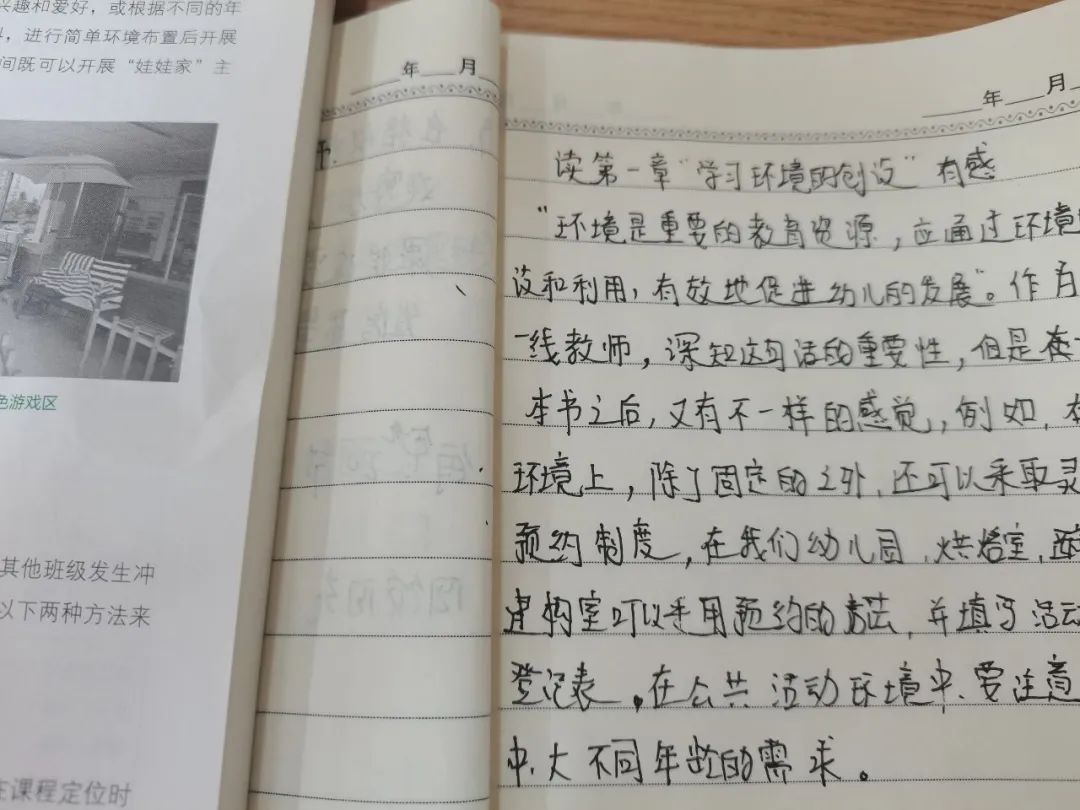 兴趣和爱好，或根据不同的年
，进行简单环境布置后开展
间既可以开展“娃娃家”主
色游戏区
其他班级发生冲
以下两种方法来
课程定位时
年 月
年 月
读第一章“学习环境的创设”有感
“环境是重要的教育资源，应通过环境
设和利用，有效地促进幼儿的发展”。作为
一线教师，深知这句话的重要性，但是在
本书之后，又有不一样的感觉，例如，在
环境上，除了固定的之外，还可以采取灵
预约制度，在我们幼儿园，烘焙室，
建构室可以采用预约的方法，并填写活动
登记表。在公共活动环境中，要注意
中、大不同年龄的需求。